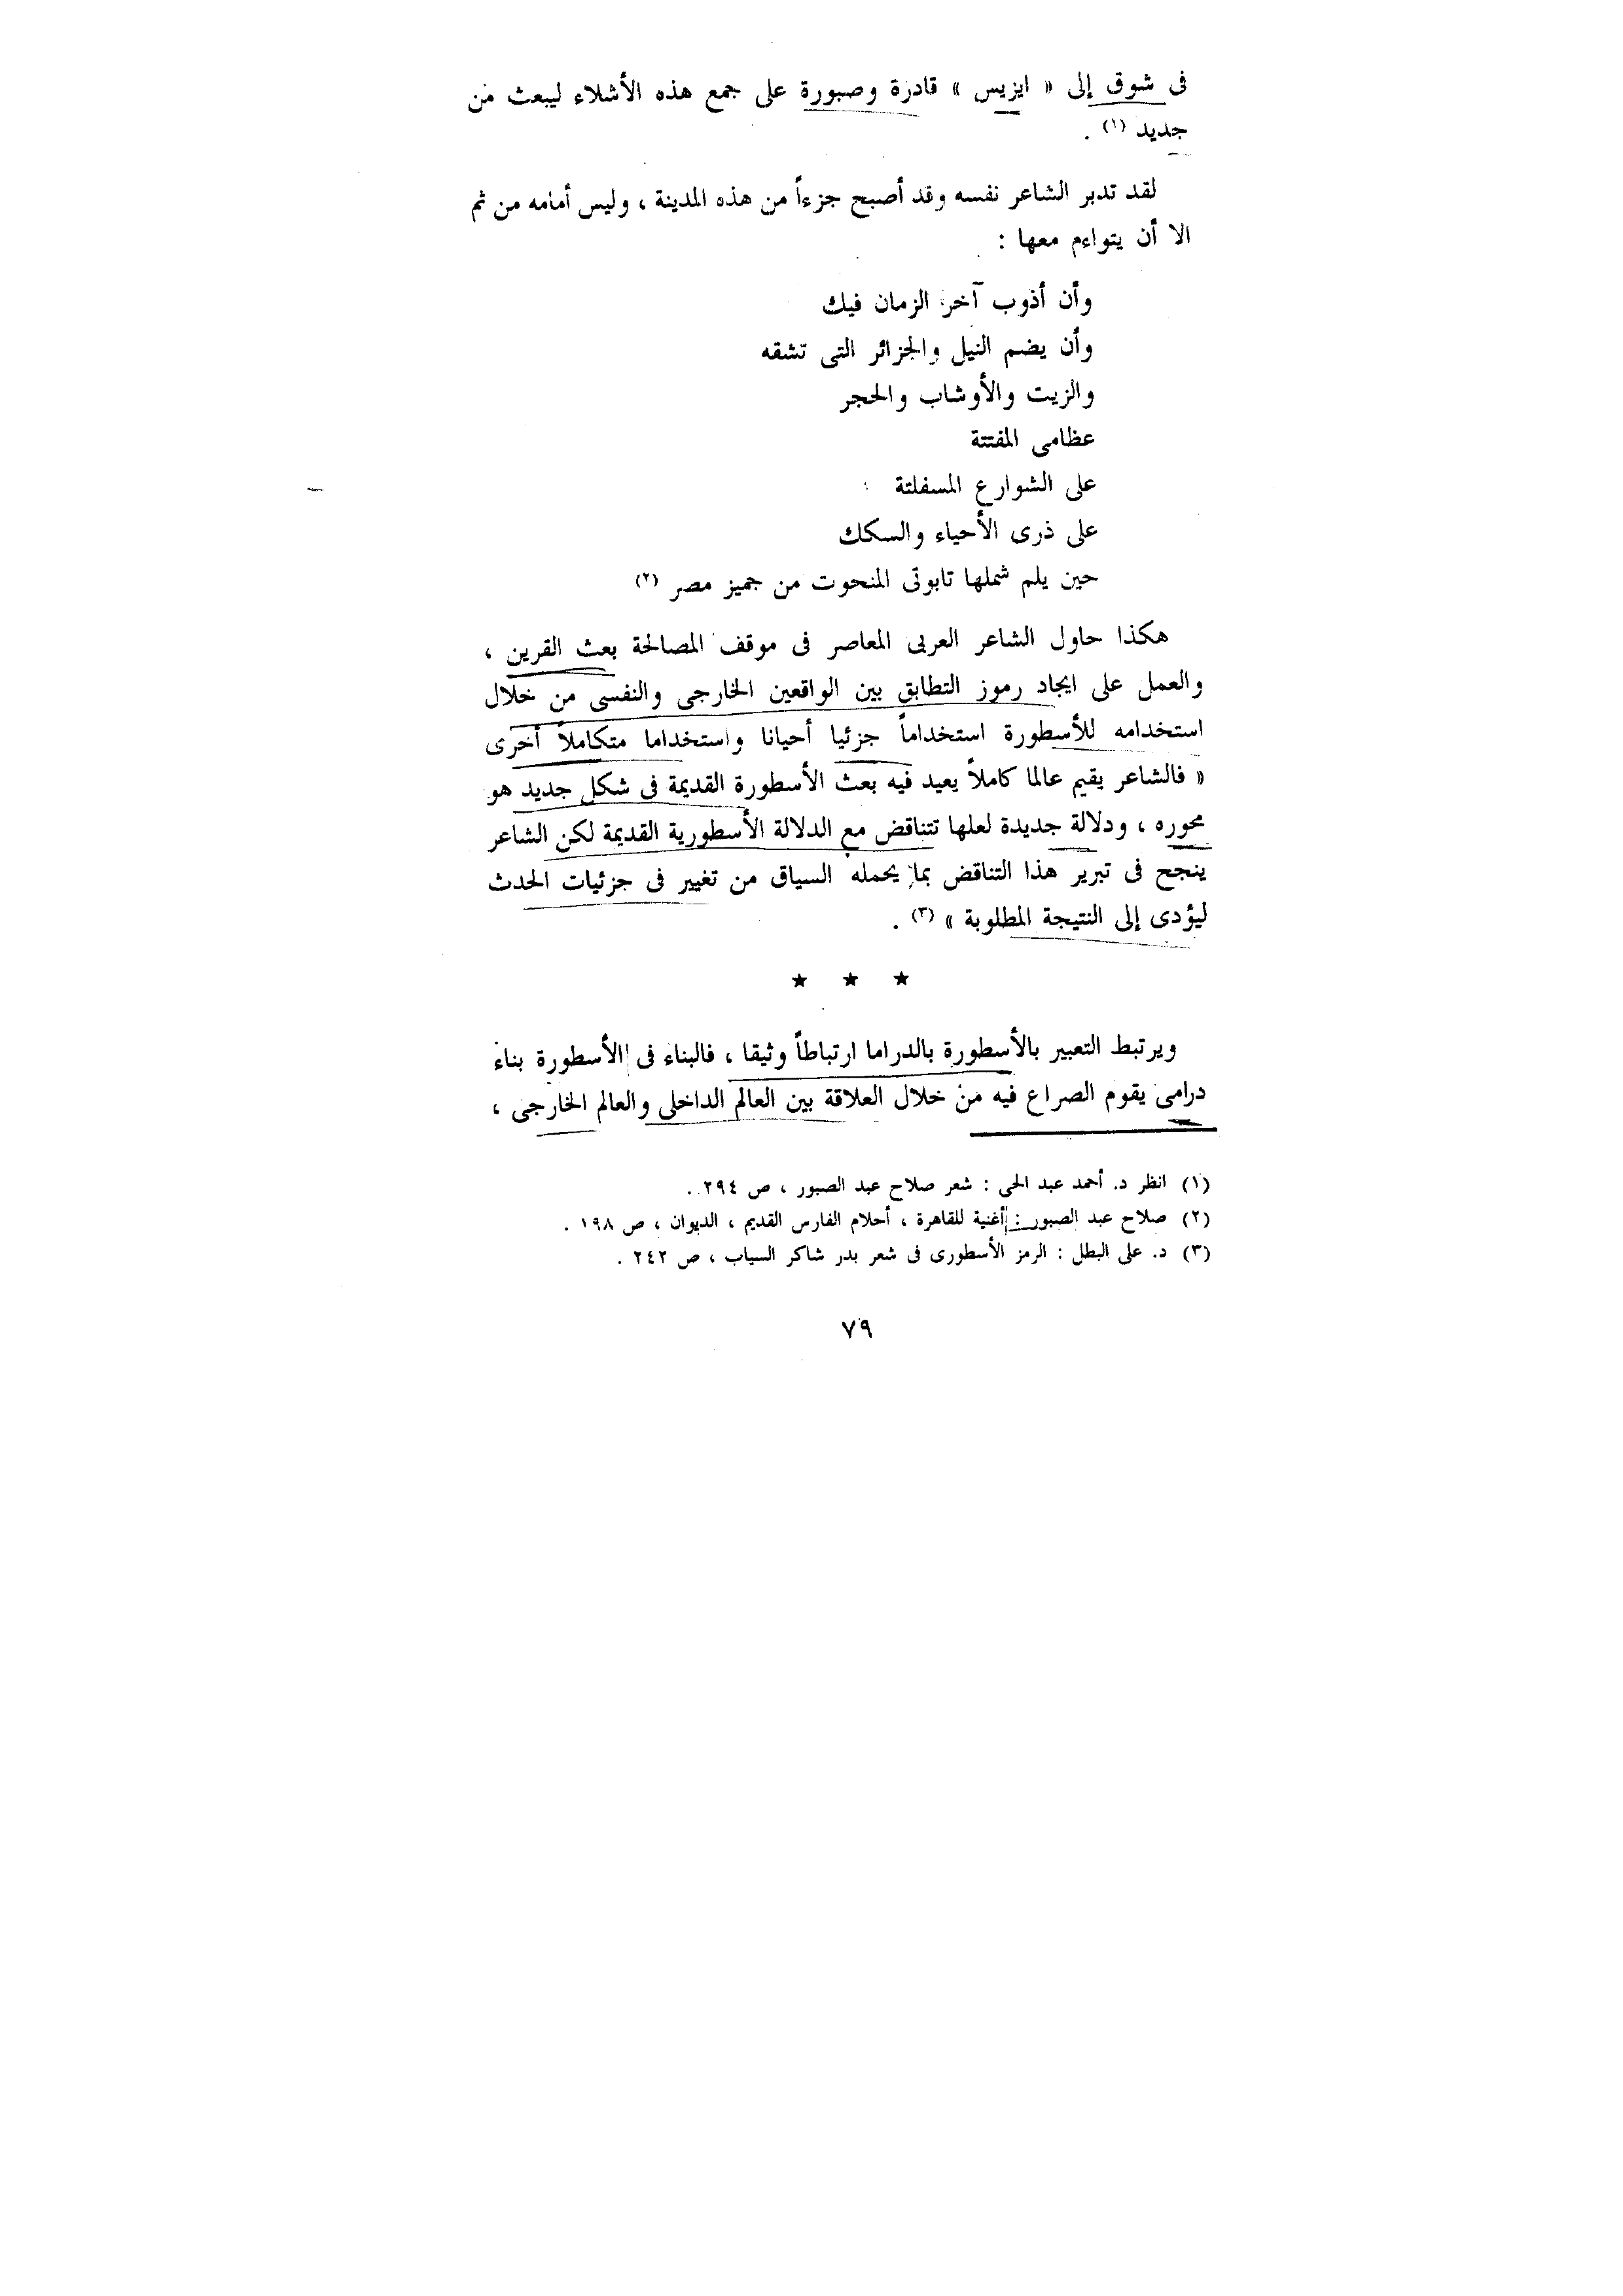 فى شوق إلى « ايزيس » قادرة وصبورة على جمع هذه الأشلاء ليبعث من
جديد (١) .
لقد تدبر الشاعر نفسه وقد أصبح جزءاً من هذه المدينة ، وليس أمامه من ثم
الا أن يتواءم معها :
وأن أذوب آخر الزمان فيك
وأن يضم النيل والجزائر التى تشقه
والزيت والأوشاب والحجر
عظامى المفتتة
على الشوارع المسفلتة
على ذرى الأحياء والسكك
حين يلم شملها تابوتى المنحوت من جميز مصر (٢)
هكذا حاول الشاعر العربى المعاصر فى موقف المصالحة بعث القرين ،
والعمل على ايجاد رموز التطابق بين الواقعين الخارجى والنفسى من خلال
استخدامه للأسطورة استخداماً جزئيا أحيانا واستخداما متكاملاً أخرى
« فالشاعر يقيم عالما كاملاً يعيد فيه بعث الأسطورة القديمة فى شكل جديد هو
محوره ، ودلالة جديدة لعلها تتناقض مع الدلالة الأسطورية القديمة لكن الشاعر
ينجح فى تبرير هذا التناقض بما يحمله السياق من تغيير فى جزئيات الحدث
ليؤدى إلى النتيجة المطلوبة » (٣) .
★ ★ ★
ويرتبط التعبير بالأسطورة بالدراما ارتباطاً وثيقا ، فالبناء فى الأسطورة بناء
درامى يقوم الصراع فيه من خلال العلاقة بين العالم الداخلى والعالم الخارجى ،
(١) انظر د. أحمد عبد الحى : شعر صلاح عبد الصبور ، ص ٢٩٤ .
(٢) صلاح عبد الصبور : أغنية للقاهرة ، أحلام الفارس القديم ، الديوان ، ص ١٩٨ .
(٣) د. على البطل : الرمز الأسطورى فى شعر بدر شاكر السياب ، ص ٢٤٢ .
٧٩